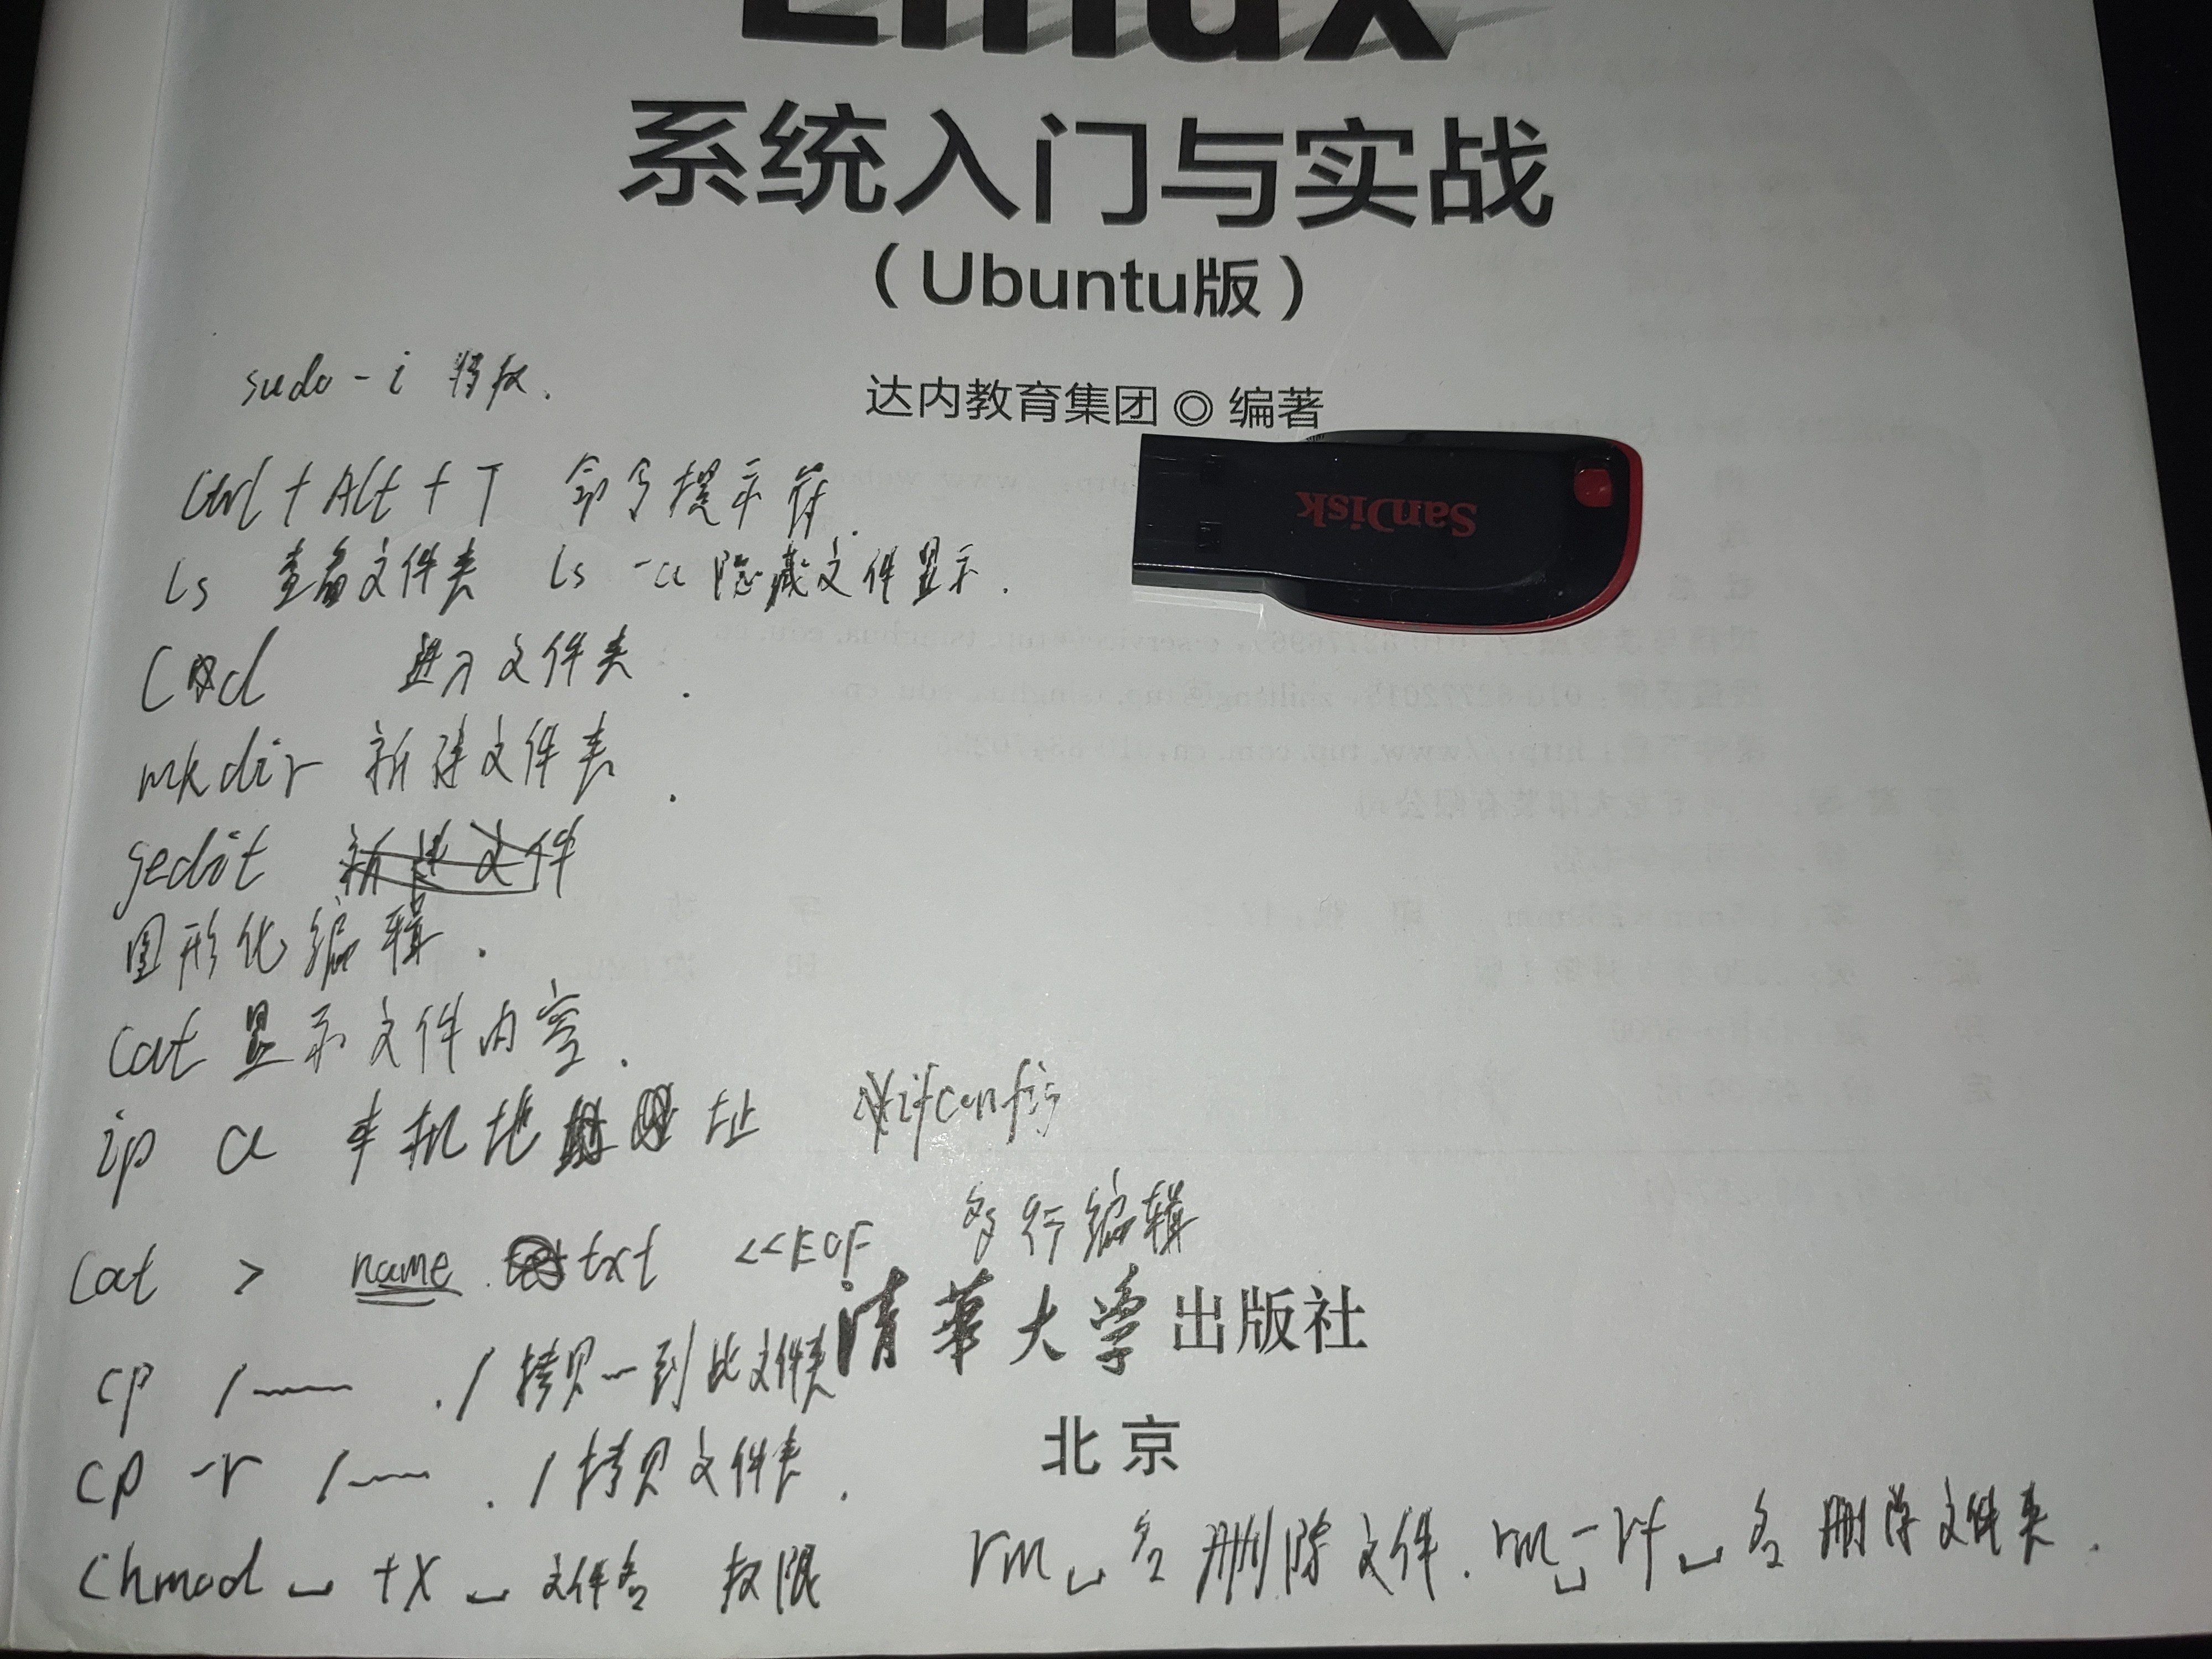 Linux
系统入门与实战
（Ubuntu版）
sudo -i 特权.
达内教育集团 ◎ 编著
Ctrl + Alt + T 命令提示符.
SanDisk
ls 查看文件夹 ls -a 隐藏文件显示.
cd 进入文件夹.
mkdir 新建文件夹.
gedit 新建文件
图形化编辑.
cat 显示文件内容.
ip a 本机地址 ifconfig
cat > name .txt <<EOF 多行编辑
清華大学出版社
cp /—— ./ 拷贝一到此文件夹
北京
cp -r /—— ./ 拷贝文件夹.
chmod ␣ +x ␣ 文件名 权限 rm ␣ 名 删除文件. rm ␣ -rf ␣ 名 删除文件夹.